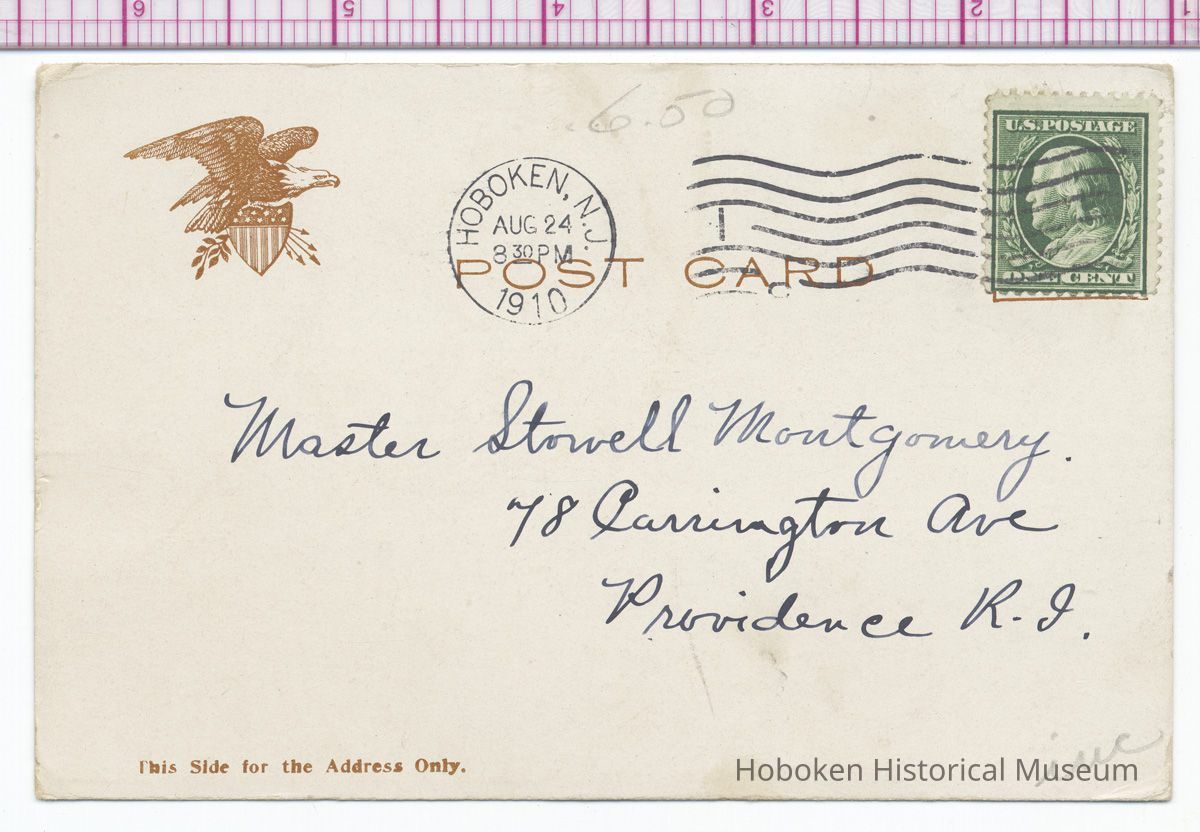 6 5 4 3 2 1
6.50
U.S. POSTAGE
HOBOKEN, N.J.
AUG 24
8 30 PM
1910
POST CARD
ONE CENT
Master Stowell Montgomery.
78 Carrington Ave
Providence R.I.
This Side for the Address Only.
Hoboken Historical Museum